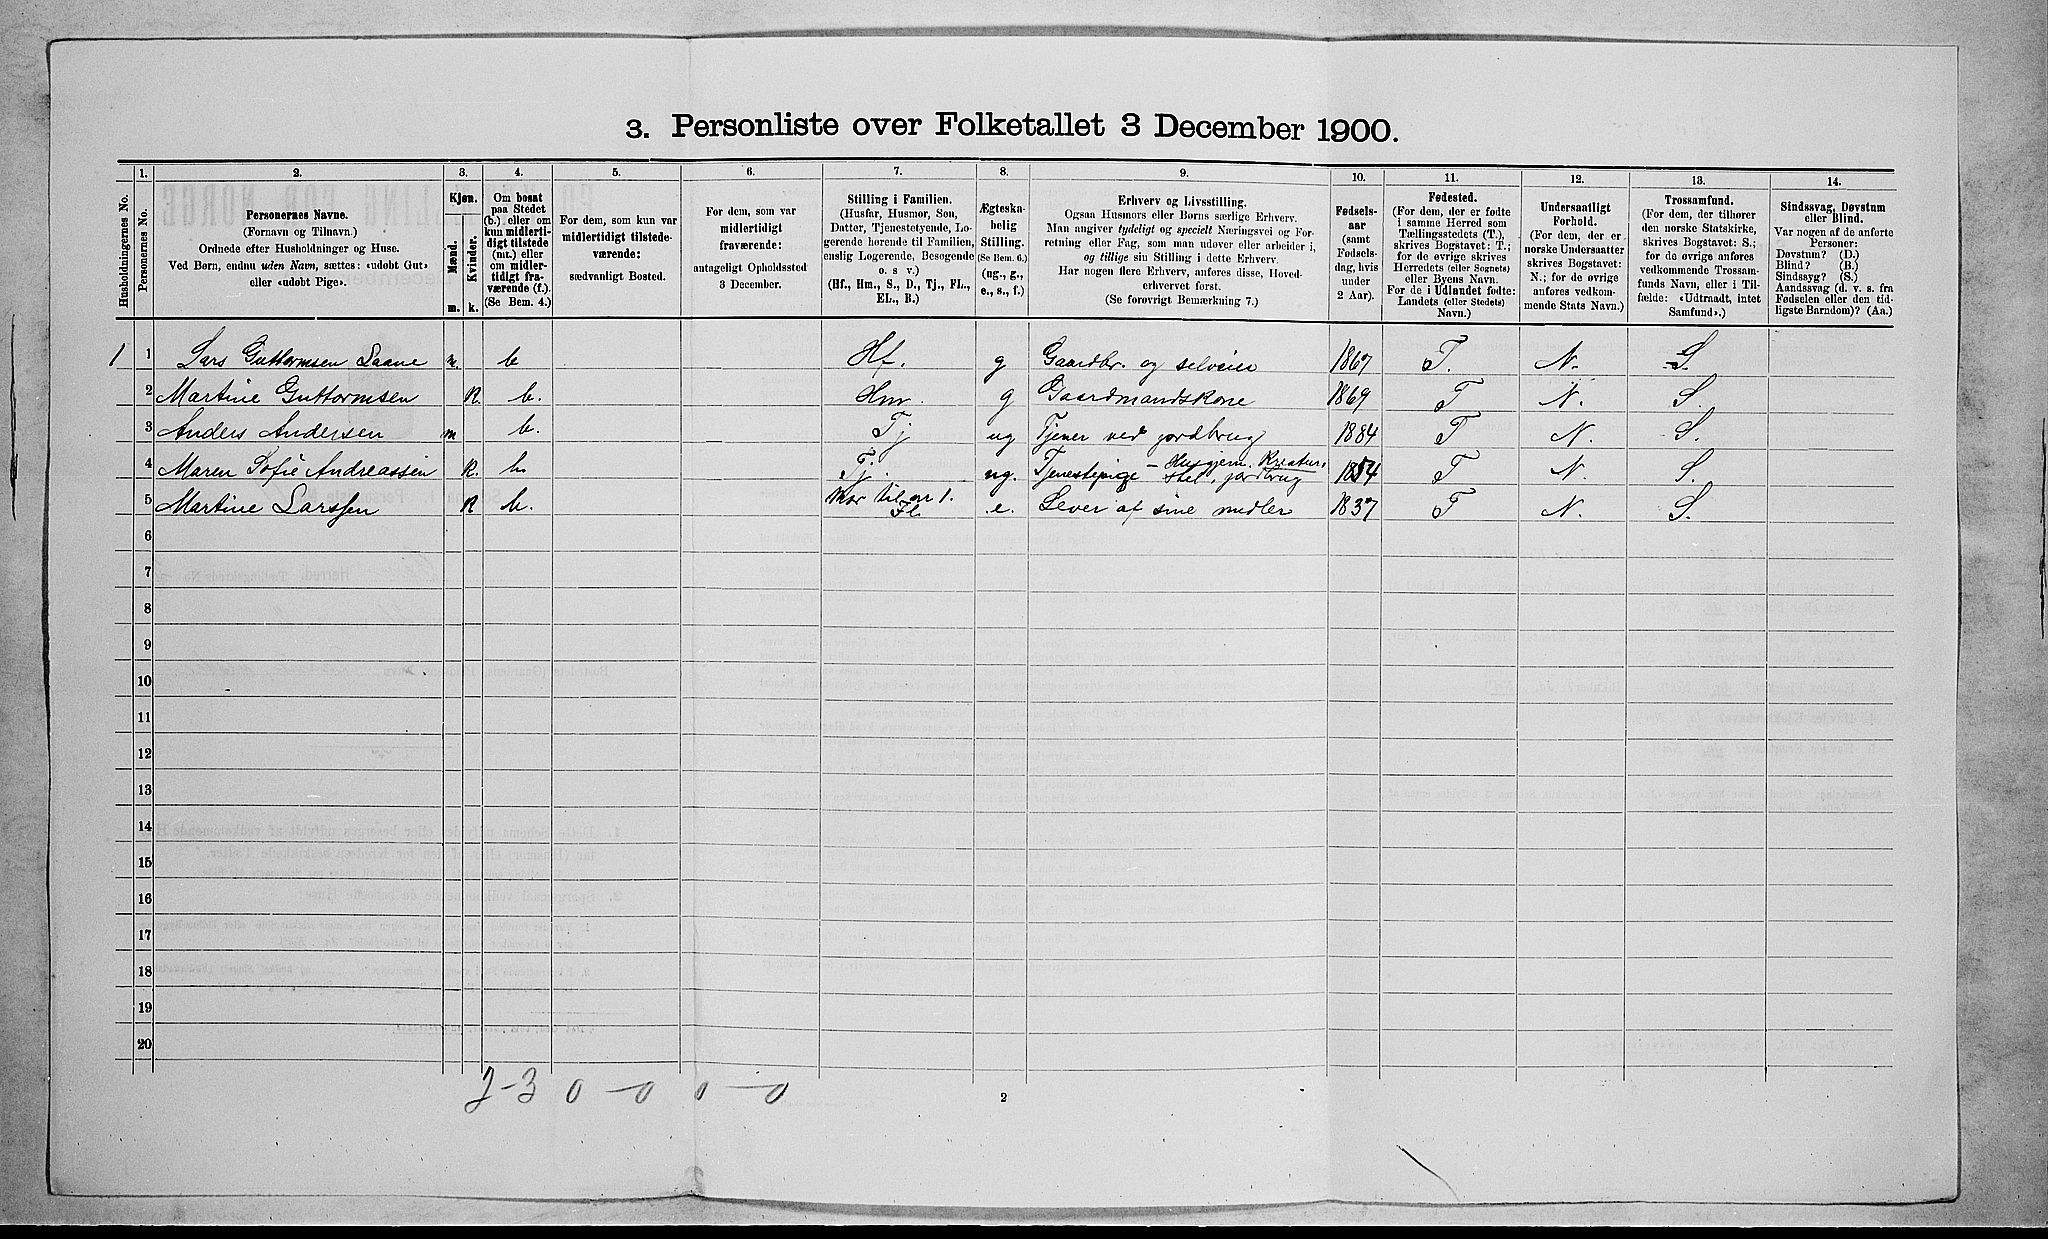 3. Personliste over Folketallet 3 December 1900.
Husholdningernes No.
1.
Personernes No.
2.
Personernes Navne.
(Fornavn og Tilnavn.)
Ordnede efter Husholdninger og Huse.
Ved Børn, endnu uden Navn, sættes: «udøbt Gut»
eller «udøbt Pige».
3.
Kjøn.
Mænd.
Kvinder.
m. k.
4.
Om bosat
paa Stedet
(b.) eller om
kun midlerti-
digt tilstede
(mt.) eller
om midler-
tidigt fra-
værende (f.).
(Se Bem. 4.)
5.
For dem, som kun var
midlertidigt tilstede-
værende:
sædvanligt Bosted.
6.
For dem, som var
midlertidigt
fraværende:
antageligt Opholdssted
3 December.
7.
Stilling i Familien.
(Husfar, Husmor, Søn,
Datter, Tjenestetyende, Lo-
gerende hørende til Familien,
enslig Logerende, Besøgende
o. s v.)
(Hf., Hm., S., D., Tj., FL.,
EL., B.)
8.
Ægteska-
belig
Stilling.
(Se Bem. 6.)
(ug., g.,
e., s., f.)
9.
Erhverv og Livsstilling.
Ogsaa Husmors eller Børns særlige Erhverv.
Man angiver tydeligt og specielt Næringsvei og For-
retning eller Fag, som man udøver eller arbeider i,
og tillige sin Stilling i dette Erhverv.
Har nogen flere Erhverv, anføres disse, Hoved-
erhvervet først.
(Se forøvrigt Bemærkning 7.)
10.
Fødsels-
aar
(samt
Fødsels-
dag, hvis
under
2 Aar).
11.
Fødested.
(For dem, der er fødte
i samme Herred som
Tællingsstedets (T.),
skrives Bogstavet: T.;
for de øvrige skrives
Herredets (eller Sognets)
eller Byens Navn.
For de i Udlandet fødte:
Landets (eller Stedets)
Navn.)
12.
Undersaatligt
Forhold.
(For dem, der er
norske Undersaatter
skrives Bogstavet:
N.; for de øvrige
anføres vedkom-
mende Stats Navn.)
13.
Trossamfund.
(For dem, der tilhører
den norske Statskirke,
skrives Bogstavet: S.;
for de øvrige anføres
vedkommende Trossam-
funds Navn, eller i Til-
fælde: «Udtraadt, intet
Samfund».)
14.
Sindssvag, Døvstum
eller Blind.
Var nogen af de anførte
Personer:
Døvstum? (D.)
Blind? (B.)
Sindssyg? (S.)
Aandssvag (d. v. s. fra
Fødselen eller den tid-
ligste Barndom)? (Aa.)
1 1 Lars Guttormsen Laane m. b Hf. g Gaardbr. og selveier 1867 T. N. S.
2 Martine Guttormsen K. b. Hm. g Gaardmandskone 1869 T N. S.
3 Anders Andersen m b. Tj ug Tjener ved jordbrug 1884 T N. S.
4 Maren Sofie Andreassen K. b. Tj. ug. Tjenestepige – Husgjern. Kreatur-
stel, jordbrug 1854 T N. S.
5 Martine Larssen K b. Mor til nr 1.
Fl. e. Lever af sine midler 1837 T N. S.
6
7
8
9
10
11
12
13
14
15
16
17
18
19
20
2-3 0 – 0 0 – 0
2